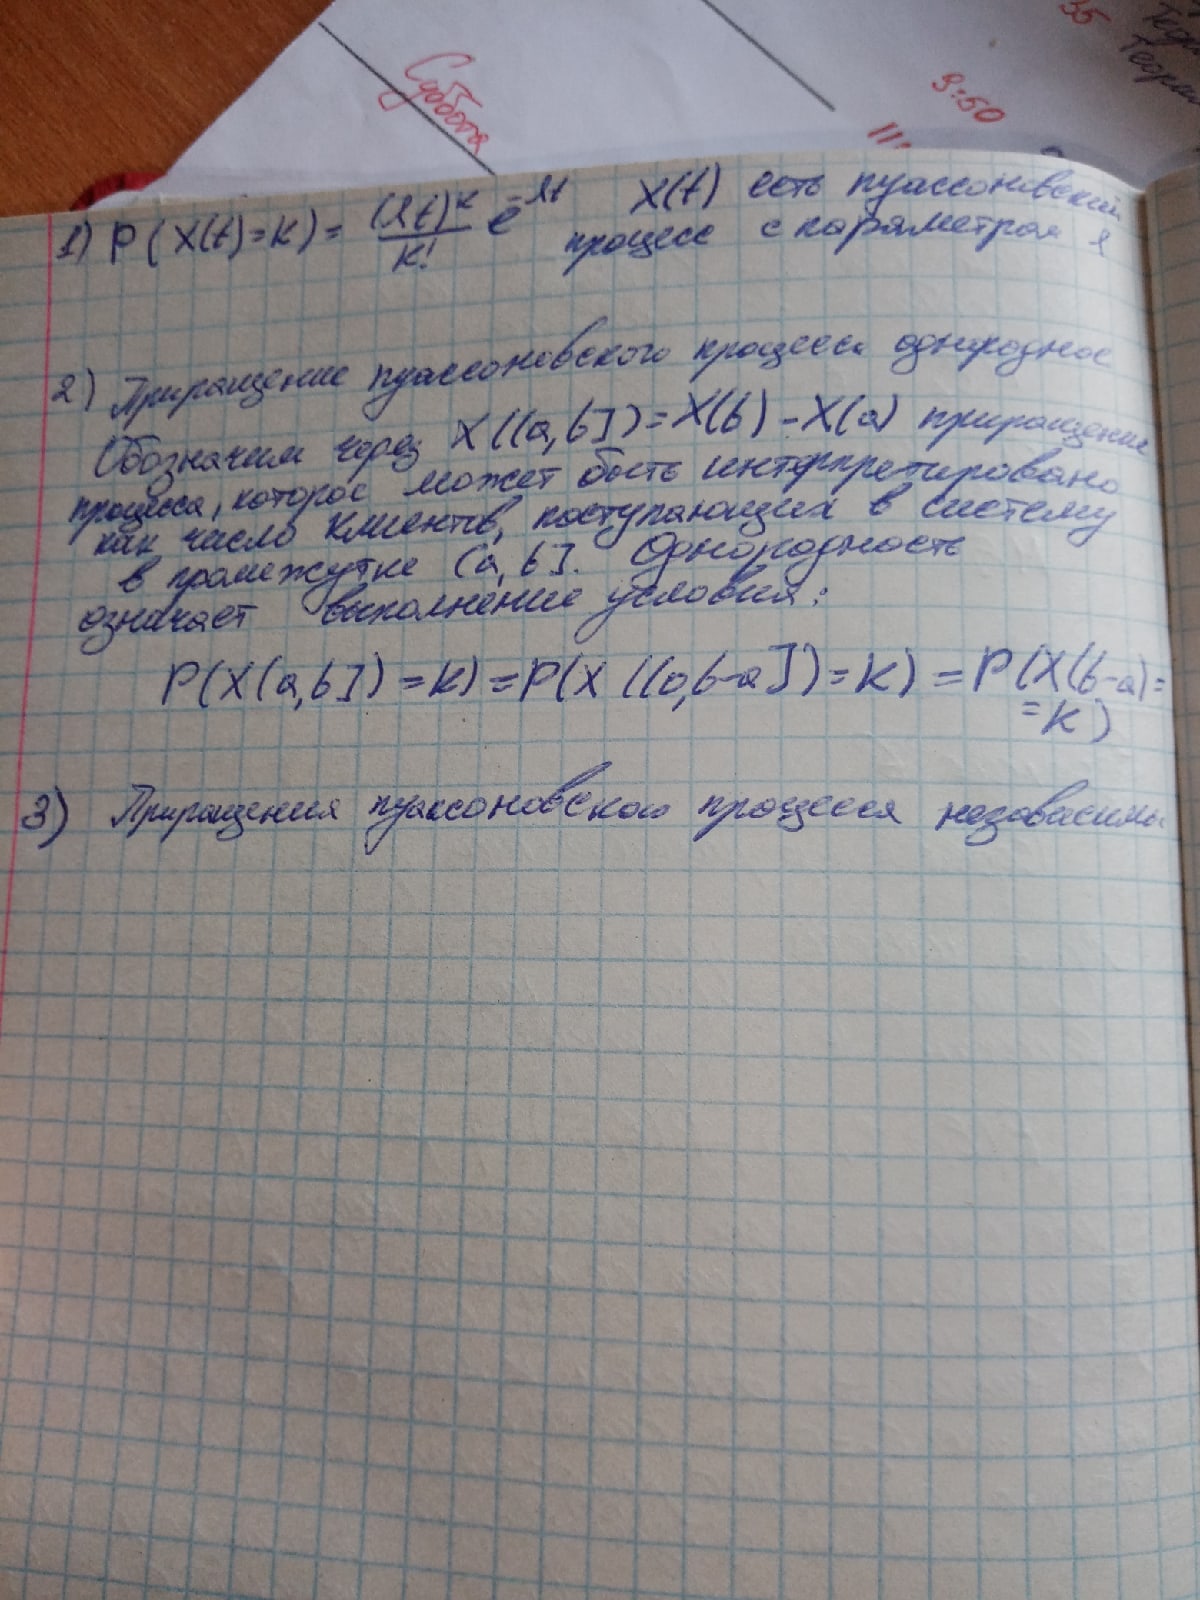 Суббота
9:50
35
1) P(X(t)=k)= (λt)^k / k! e^-λt X(t) есть пуассоновский
процесс с параметром λ
2) Приращение пуассоновского процесса однородное
Обозначим через X((a,b])=X(b)-X(a) приращение
процесса, которое может быть интерпретировано
как число клиентов, поступающих в систему
в промежутке (a,b]. Однородность
означает выполнение условия:
P(X(a,b])=k)=P(X((0,b-a])=k)=P(X(b-a)=
=k)
3) Приращения пуассоновского процесса независимы